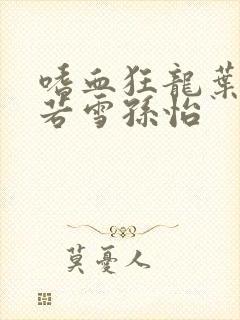 嗜血狂龍葉
若雪孫怡
莫憂人